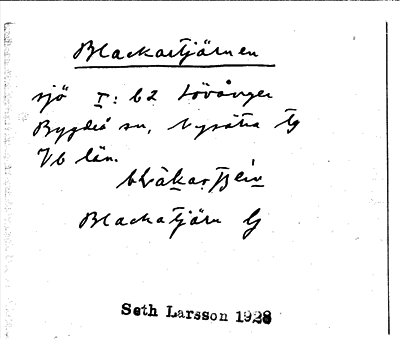 Blackartjärnen
sjö I: b2 Lövånger
Bygdeå sn, Nysätra tg
Vb län.
Blackatjärn
Seth Larsson 1928